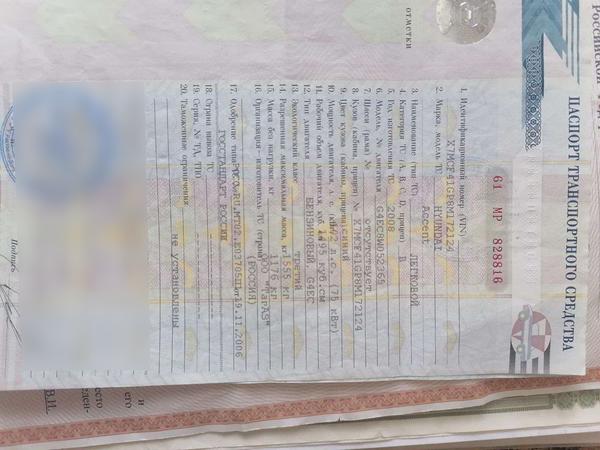 ПАСПОРТ ТРАНСПОРТНОГО СРЕДСТВА
61 МР 828816
1. Идентификационный номер (VIN) X7MCF41GP8M172124
2. Марка, модель ТС HYUNDAI
Accent
3. Наименование (тип ТС) ЛЕГКОВОЙ
4. Категория ТС (A, B, C, D, прицеп) B
5. Год изготовления ТС 2008
6. Модель, № двигателя G4EC8W052365
7. Шасси (рама) № отсутствует
8. Кузов (кабина, прицеп) № X7MCF41GP8M172124
9. Цвет кузова (кабины, прицепа) СИНИЙ
10. Мощность двигателя, л. с. (кВт) 102 л.с. (75 кВт)
11. Рабочий объем двигателя, куб. см 1495 куб.см
12. Тип двигателя БЕНЗИНОВЫЙ G4EC
13. Экологический класс третий
14. Разрешенная максимальная масса, кг 1555 кг
15. Масса без нагрузки, кг 1176 кг
16. Организация-изготовитель ТС (страна)
(РОССИЯ)
17. Одобрение типа ТС №
ГОССТАНДАРТ РОССИИ
18. Страна вывоза ТС
19. Серия, № ТД, ТПО
20. Таможенные ограничения не установлены
Подпись
отметки
В.И.